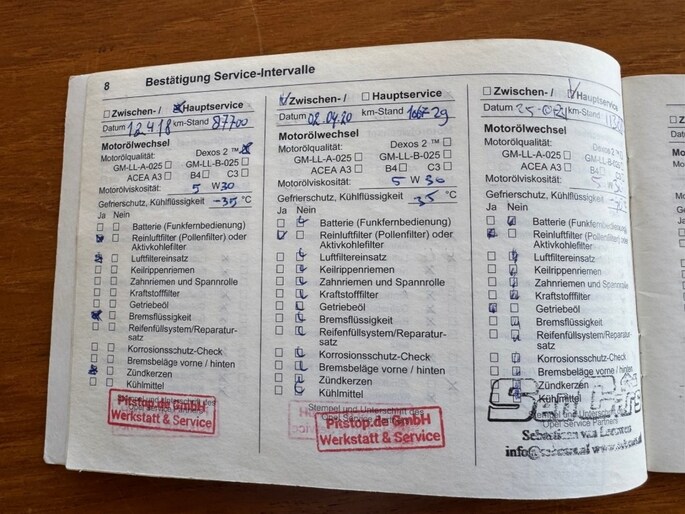 8 Bestätigung Service-Intervalle
Zwischen- / Hauptservice
Datum 12 4 18 km-Stand 87700
Motorölwechsel
Motorölqualität: Dexos 2 ™
GM-LL-A-025 GM-LL-B-025
ACEA A3 B4 C3
Motorölviskosität: 5 W 30
Gefrierschutz, Kühlflüssigkeit -35 °C
Ja Nein
Batterie (Funkfernbedienung)
Reinluftfilter (Pollenfilter) oder
Aktivkohlefilter
Luftfiltereinsatz
Keilrippenriemen
Zahnriemen und Spannrolle
Kraftstofffilter
Getriebeöl
Bremsflüssigkeit
Reifenfüllsystem/Reparatur-
satz
Korrosionsschutz-Check
Bremsbeläge vorne / hinten
Zündkerzen
Kühlmittel
Pitstop.de GmbH
Werkstatt & Service
Zwischen- / Hauptservice
Datum 02.04.20 km-Stand
Motorölwechsel
Motorölqualität: Dexos 2 ™
GM-LL-A-025 GM-LL-B-025
ACEA A3 B4 C3
Motorölviskosität: 5 W 30
Gefrierschutz, Kühlflüssigkeit -35 °C
Ja Nein
Batterie (Funkfernbedienung)
Reinluftfilter (Pollenfilter) oder
Aktivkohlefilter
Luftfiltereinsatz
Keilrippenriemen
Zahnriemen und Spannrolle
Kraftstofffilter
Getriebeöl
Bremsflüssigkeit
Reifenfüllsystem/Reparatur-
satz
Korrosionsschutz-Check
Bremsbeläge vorne / hinten
Zündkerzen
Kühlmittel
Stempel und Unterschrift des
Opel Service
Pitstop.de GmbH
Werkstatt & Service
Zwischen- / Hauptservice
Datum km-Stand
Motorölwechsel
Motorölqualität: Dexos 2 ™
GM-LL-A-025 GM-LL-B-025
ACEA A3 B4 C3
Motorölviskosität: 5 W
Gefrierschutz, Kühlflüssigkeit
Ja Nein
Batterie (Funkfernbedienung)
Reinluftfilter (Pollenfilter) oder
Aktivkohlefilter
Luftfiltereinsatz
Keilrippenriemen
Zahnriemen und Spannrolle
Kraftstofffilter
Getriebeöl
Bremsflüssigkeit
Reifenfüllsystem/Reparatur-
satz
Korrosionsschutz-Check
Bremsbeläge vorne / hinten
Zündkerzen
Kühlmittel
Opel Service Partners